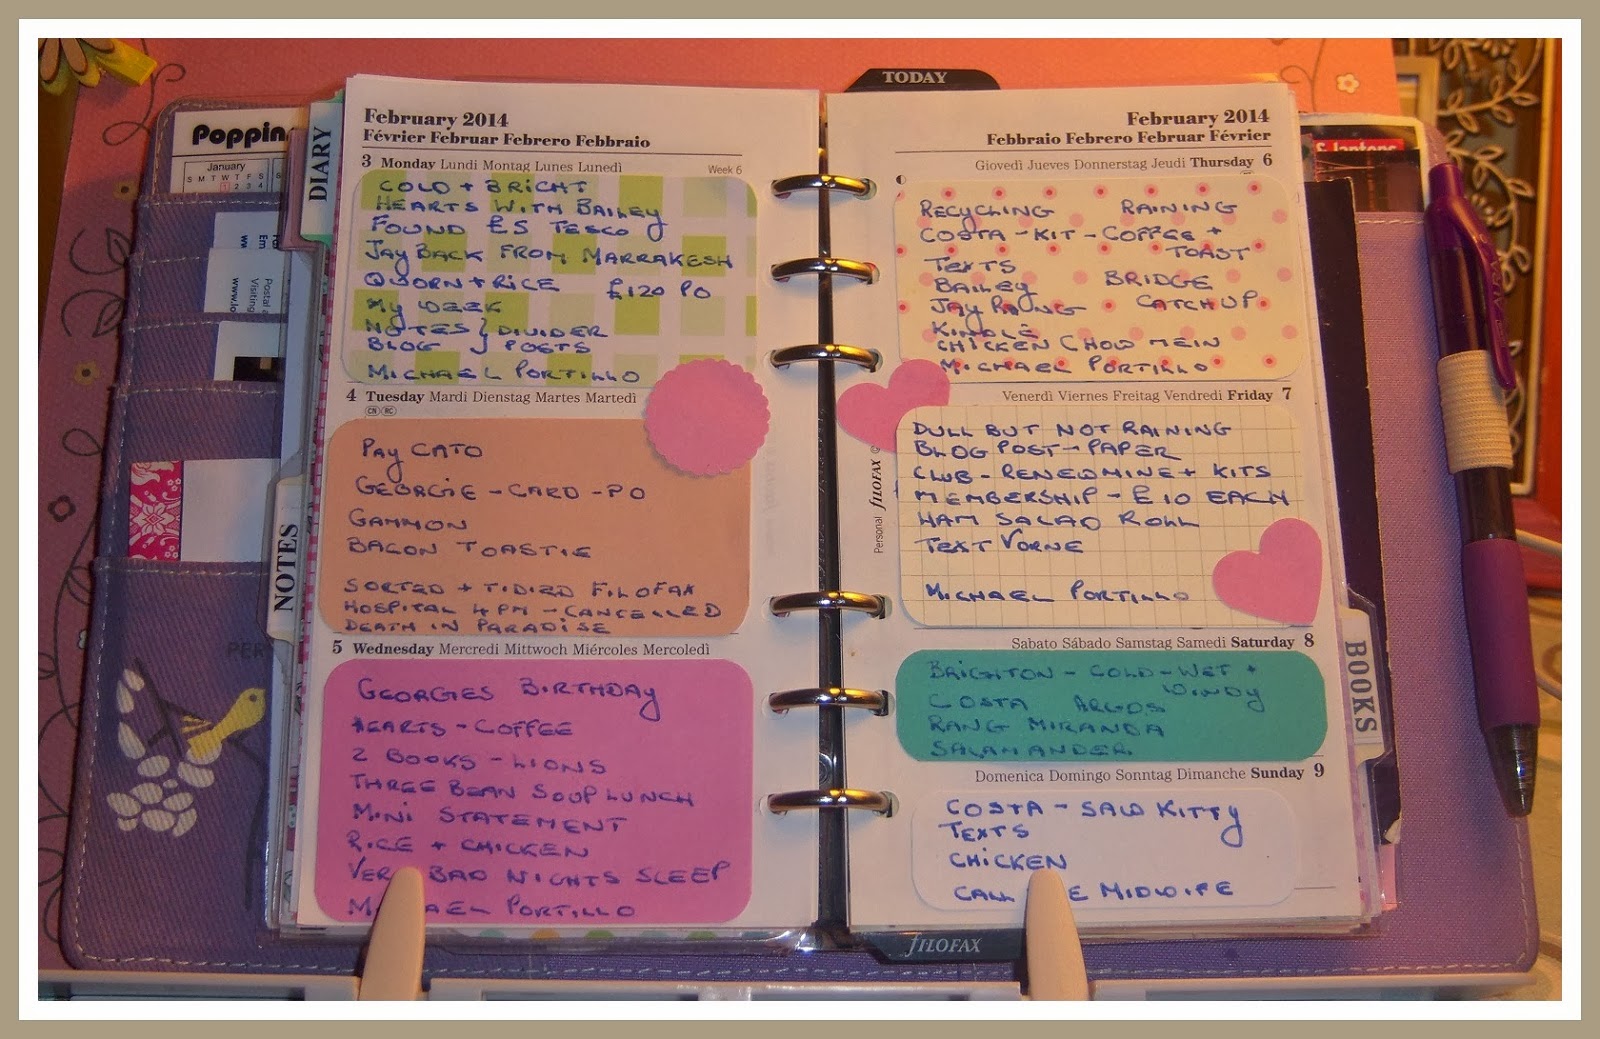 TODAY
Poppin
January
S M T W T F S
1 2 3 4
DIARY
NOTES
February 2014
Février Februar Febrero Febbraio
3 Monday Lundi Montag Lunes Lunedì Week 6
COLD + BRIGHT
HEARTS WITH BAILEY
FOUND £5 TESCO
JAY BACK FROM MARRAKESH
QUORN + RICE £120 PO
MY WEEK
NOTES } DIVIDER
BLOG } POSTS
MICHAEL PORTILLO
4 Tuesday Mardi Dienstag Martes Martedì
CN RC
PAY CATO
GEORGIE - CARD - PO
GAMMON
BACON TOASTIE
SORTED + TIDIED FILOFAX
HOSPITAL 4PM - CANCELLED
DEATH IN PARADISE
5 Wednesday Mercredi Mittwoch Miércoles Mercoledì
GEORGIES BIRTHDAY
HEARTS - COFFEE
2 BOOKS - LIONS
THREE BEAN SOUP LUNCH
MINI STATEMENT
RICE + CHICKEN
VER BAD NIGHTS SLEEP
M AEL PORTILLO
February 2014
Febbraio Febrero Februar Février
Giovedì Jueves Donnerstag Jeudi Thursday 6
RECYCLING RAINING
COSTA - KIT - COFFEE +
TOAST
TEXTS
BAILEY BRIDGE
JAY RANG CATCH UP
KINDLE
CHICKEN CHOW MEIN
MICHAEL PORTILLO
Venerdì Viernes Freitag Vendredi Friday 7
DULL BUT NOT RAINING
BLOG POST - PAPER
CLUB - RENEW MINE + KITS
MEMBERSHIP - £10 EACH
HAM SALAD ROLL
TEXT VORNE
MICHAEL PORTILLO
Personal FILOFAX ©
Sabato Sábado Samstag Samedi Saturday 8
BRIGHTON - COLD - WET +
WINDY
COSTA ARGOS
RANG MIRANDA
SALAMANDER
Domenica Domingo Sonntag Dimanche Sunday 9
COSTA - SAW KITTY
TEXTS
CHICKEN
CALL E MIDWIFE
BOOKS
FILOFAX